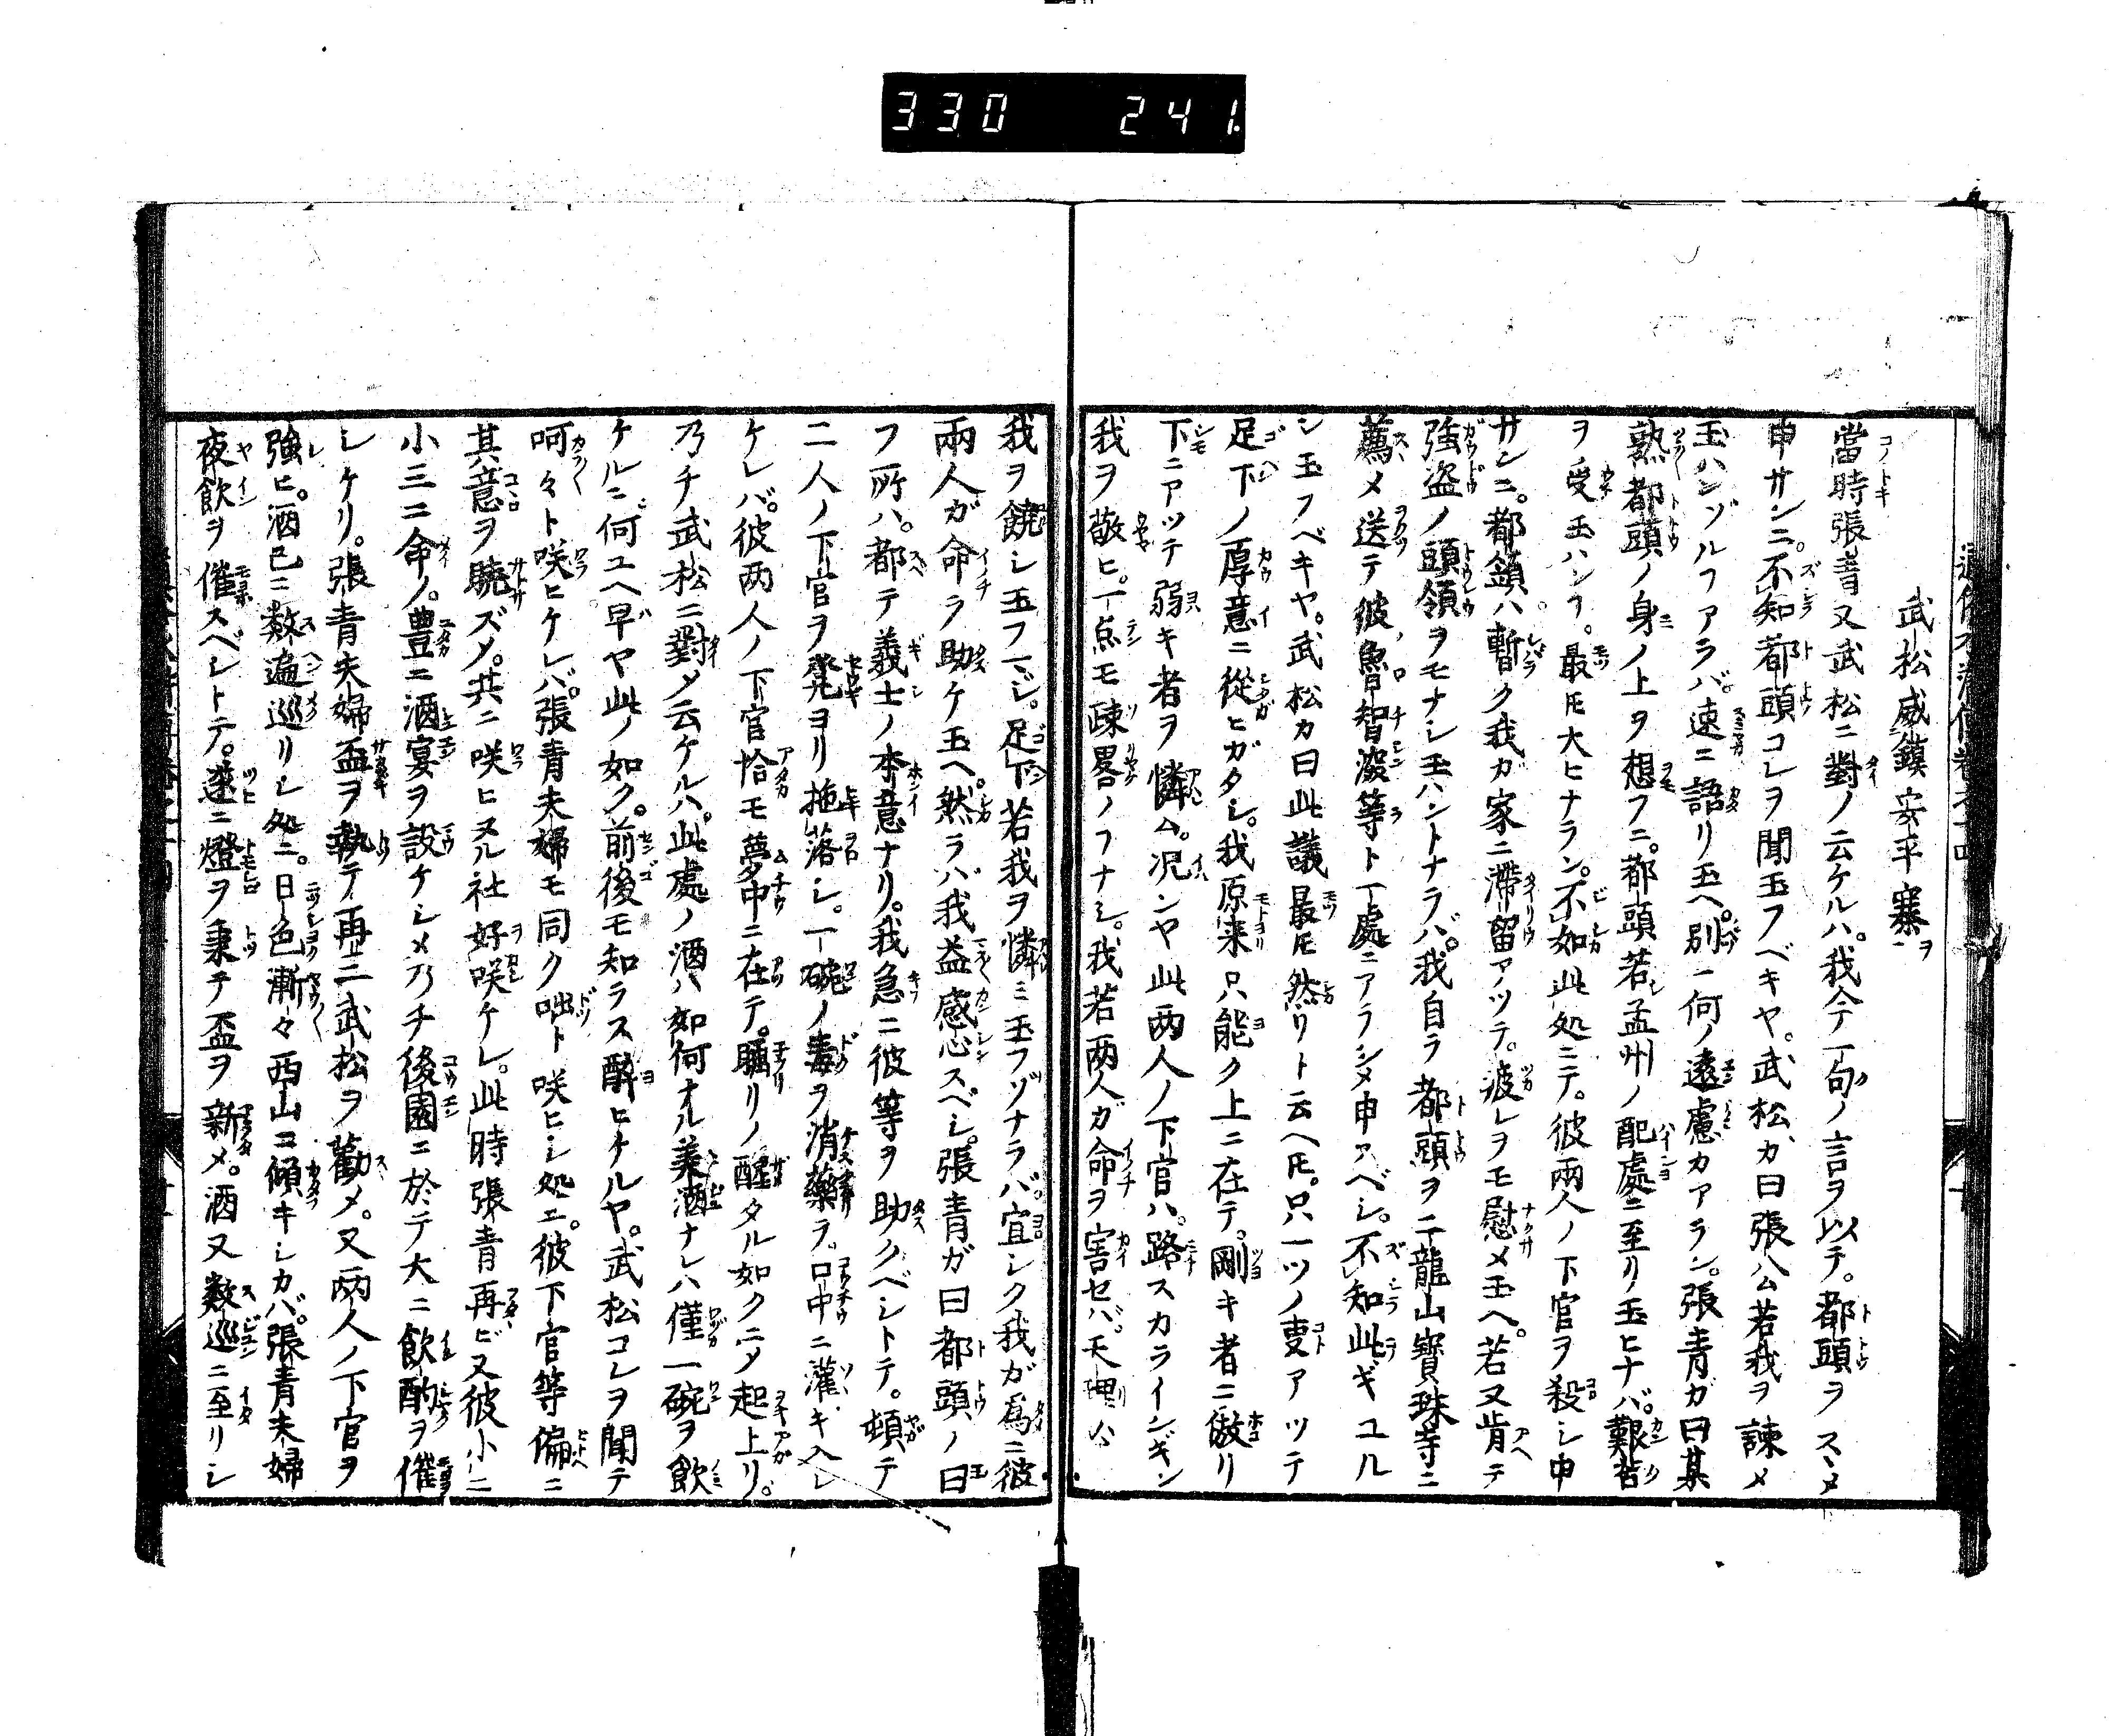 330 241.
武松威鎮安平寨ヲ
當時張青又武松ニ對〆云ケルハ。我今一句ノ言ヲ以チ。都頭ヲスヽメ
申サンニ。不知都頭コレヲ聞玉フベキヤ。武松カ曰張公若我ヲ諫メ
玉ハンヿアラバ。速ニ語リ玉ヘ。別ニ何ノ遠慮カアラン。張青ガ曰某
熟都頭ノ身ノ上ヲ想フニ。都頭若孟州ノ配處ニ至リ玉ヒナバ。艱苦
ヲ受玉ハンヿ。最モ大ヒナラン。不如此処ニテ。彼兩人ノ下官ヲ殺シ申
サンニ。都頭ハ暫ク我カ家ニ滞留アツテ。疲レヲモ慰メ玉ヘ。若又肯テ
強盗ノ頭領ヲモナシ玉ハントナラバ。我自ラ都頭ヲ二龍山寶珠寺ニ
薦メ送テ彼魯智深等ト一處ニアラシメ申スベシ。不知此ギユル
シ玉フベキヤ。武松カ曰此議最モ然リト云ヘ𪜈。只一ツノ叓アツテ
足下ノ厚意ニ從ヒガタシ。我原来只能ク上ニ在テ。剛キ者ニ傲リ
下ニアツテ弱キ者ヲ憐ム。况ンヤ此两人ノ下官ハ。路スカライシギン
我ヲ敬ヒ。一点モ疎畧ノヿナシ。我若两人ガ命ヲ害セバ。天理公
我ヲ饒シ玉フマジ。足下若我ヲ憐ミ玉フヿナラバ。宜シク我ガ爲ニ彼
兩人ガ命ヲ助ケ玉ヘ。然ラバ我益感心スベシ。張青ガ曰都頭ノ曰
フ所ハ。都テ義士ノ本意ナリ。我急ニ彼等ヲ助クベシトテ。頓テ
二人ノ下官ヲ凳ヨリ拖落シ。一碗ノ毒ヲ消藥ヲ。口中ニ灌キ入レ
ケレバ。彼两人ノ下官恰モ夢中ニ在テ。睡リノ醒タル如クニ〆起上リ。
乃チ武松ニ對〆云ケルハ。此處ノ酒ハ如何ナル美酒ナレハ僅一碗ヲ飲
ケルニ何ユヘ早ヤ此ノ如ク。前後モ知ラス醉ヒケルヤ。武松コレヲ聞テ
呵々ト咲ヒケレバ。張青夫婦モ同ク咄ト咲ヒシ処ニ。彼下官等偏ニ
其意ヲ曉ズ〆。共ニ咲ヒヌル社好咲ケレ。此時張青再ビ又彼小二
小三ニ命〆。豊ニ酒宴ヲ設ケシメ乃チ後園ニ於テ大ニ飲酌ヲ催
シケリ。張青夫婦盃ヲ執テ再三武松ヲ勸メ。又两人ノ下官ヲ
強ヒ。酒已ニ数遍巡リシ処ニ。日色漸々西山ニ傾キシカバ。張青夫婦
夜飲ヲ催スベシトテ。遂ニ燈ヲ秉チ盃ヲ新メ。酒又数巡ニ至リシ